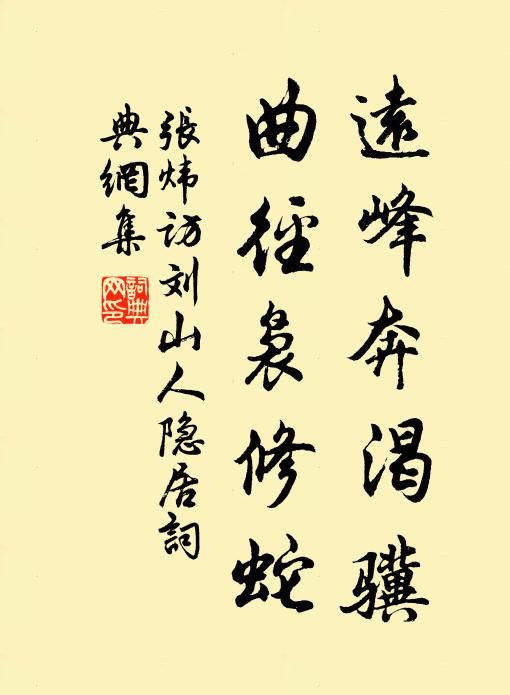 遠峰奔渴骥
曲徑裊修蛇
張炜访刘山人隐居詞
典網集
詞典
网印